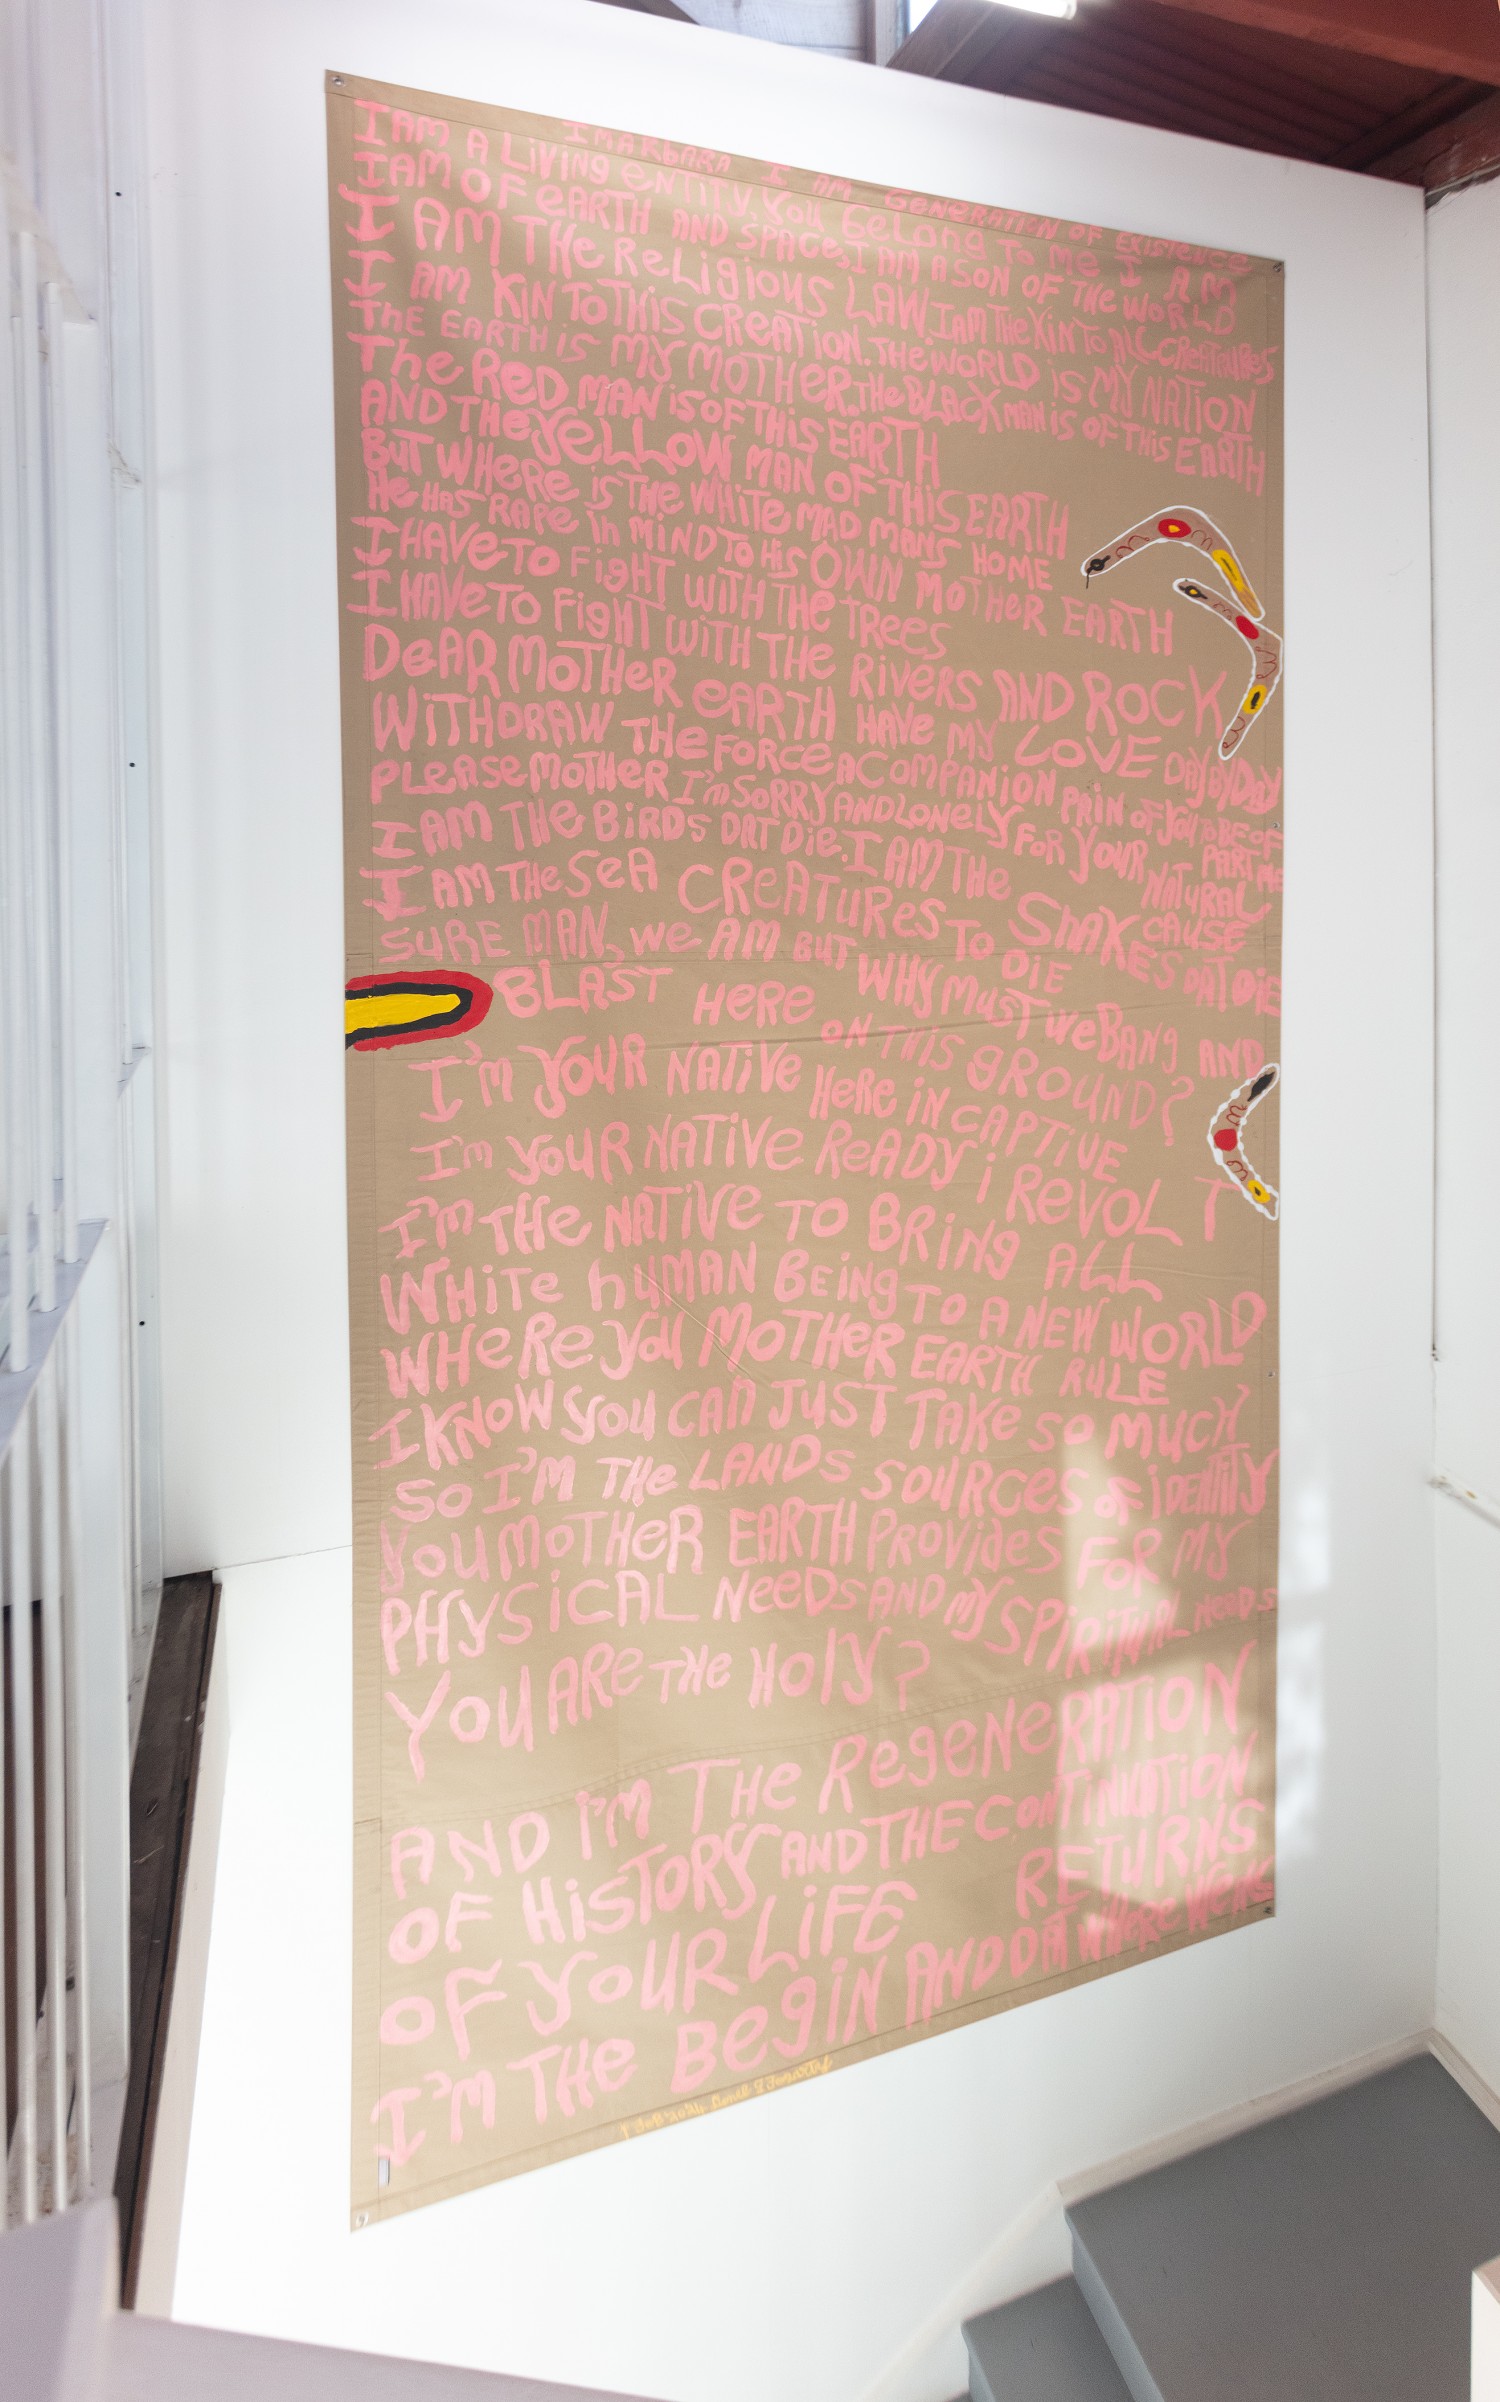 IMARBARA I AM GENERATION OF EXISTENCE
I AM A LIVING ENTITY, YOU BELONG TO ME I AM
I AM OF EARTH AND SPACE, I AM A SON OF THE WORLD
I AM THE RELIGIOUS LAW I AM THE KIN TO ALL CREATURES
I AM KIN TO THIS CREATION. THE WORLD IS MY NATION
THE EARTH IS MY MOTHER. THE BLACK MAN IS OF THIS EARTH
THE RED MAN IS OF THIS EARTH
AND THE YELLOW MAN OF THIS EARTH
BUT WHERE IS THE WHITE MAD MANS HOME
HE HAS RAPE IN MIND TO HIS OWN MOTHER EARTH
I HAVE TO FIGHT WITH THE TREES
I HAVE TO FIGHT WITH THE RIVERS AND ROCK
DEAR MOTHER EARTH HAVE MY LOVE DAY BY DAY
WITHDRAW THE FORCE ACOMPANION PAIN OF YOU TO BE OF PART ME
PLEASE MOTHER I'M SORRY AND LONELY FOR YOUR NATURAL CAUSE
I AM THE BIRDS DAT DIE. I AM THE SNAKES DAT DIE
I AM THE SEA CREATURES TO DIE
SURE MAN, WE AM BUT WHY MUST WE BANG AND
BLAST HERE ON THIS GROUND?
I'M YOUR NATIVE HERE IN CAPTIVE
I'M YOUR NATIVE READY I REVOLT
I'M THE NATIVE TO BRING ALL
WHITE HUMAN BEING TO A NEW WORLD
WHERE YOU MOTHER EARTH RULE
I KNOW YOU CAN JUST TAKE SO MUCH
SO I'M THE LANDS SOURCES OF IDENTITY
YOU MOTHER EARTH PROVIDES FOR MY
PHYSICAL NEEDS AND MY SPIRITUAL NEEDS
YOU ARE THE HOLY?
AND I'M THE REGENERATION
OF HISTORY AND THE CONTINUATION
OF YOUR LIFE RETURNS
I'M THE BEGIN AND DAT WHERE WERE